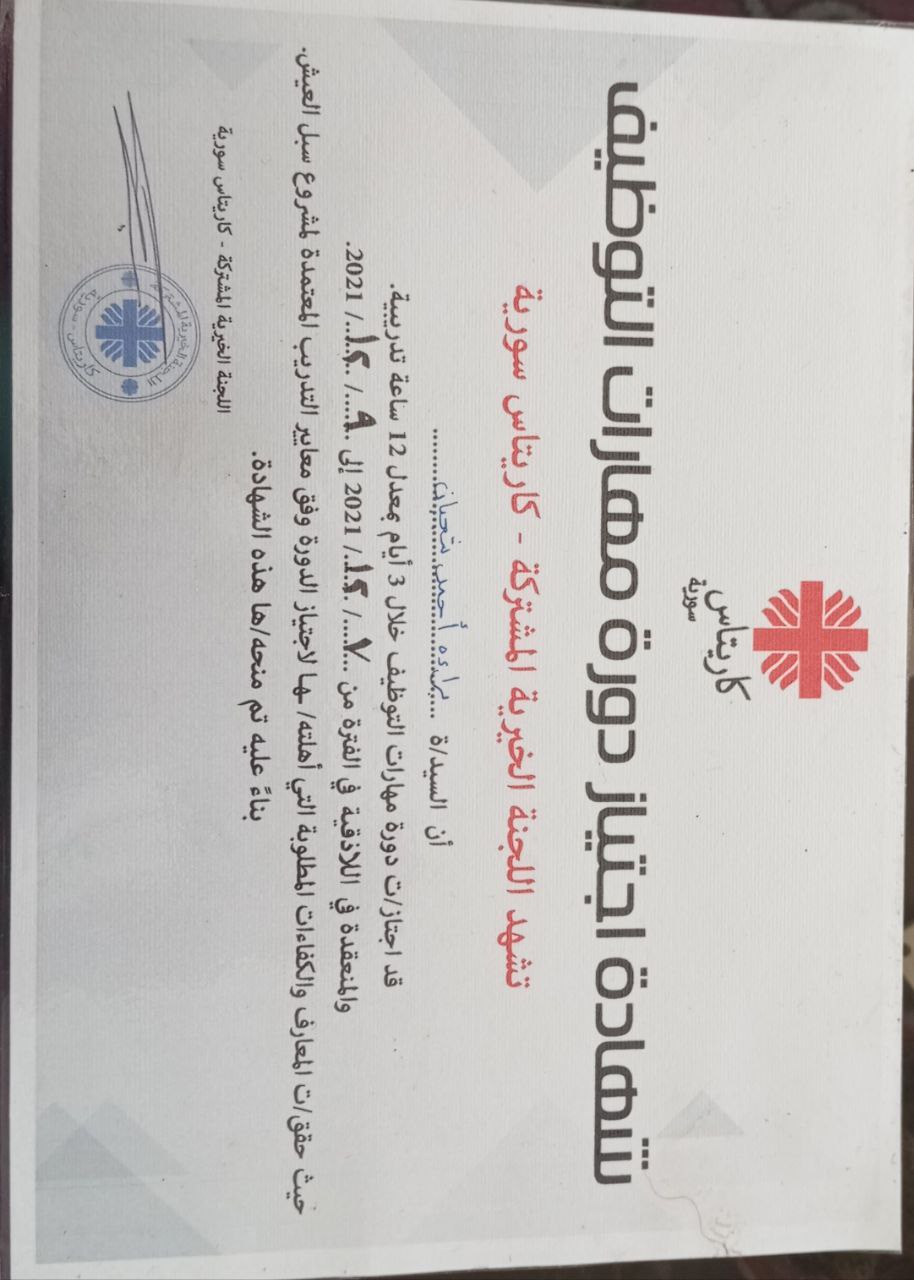 كاريتاس
سورية
شهادة اجتياز دورة مهارات التوظيف
تشهد اللجنة الخيرية المشتركة - كاريتاس سورية
أن السيد/ة ...براءه أحمد شعبان...
قد اجتاز/ت دورة مهارات التوظيف خلال 3 أيام بمعدل 12 ساعة تدريبية.
والمنعقدة في اللاذقية في الفترة من ...٧.../...١٢.../ 2021 إلى ...٩.../...١٢.../ 2021.
حيث حقق/ت المعارف والكفاءات المطلوبة التي أهلته/ ـها لاجتياز الدورة وفق معايير التدريب المعتمدة لمشروع سبل العيش.
بناءً عليه تم منحه/ها هذه الشهادة.
اللجنة الخيرية المشتركة - كاريتاس سورية
اللجنة الخيرية المشتركة
كاريتاس - سورية